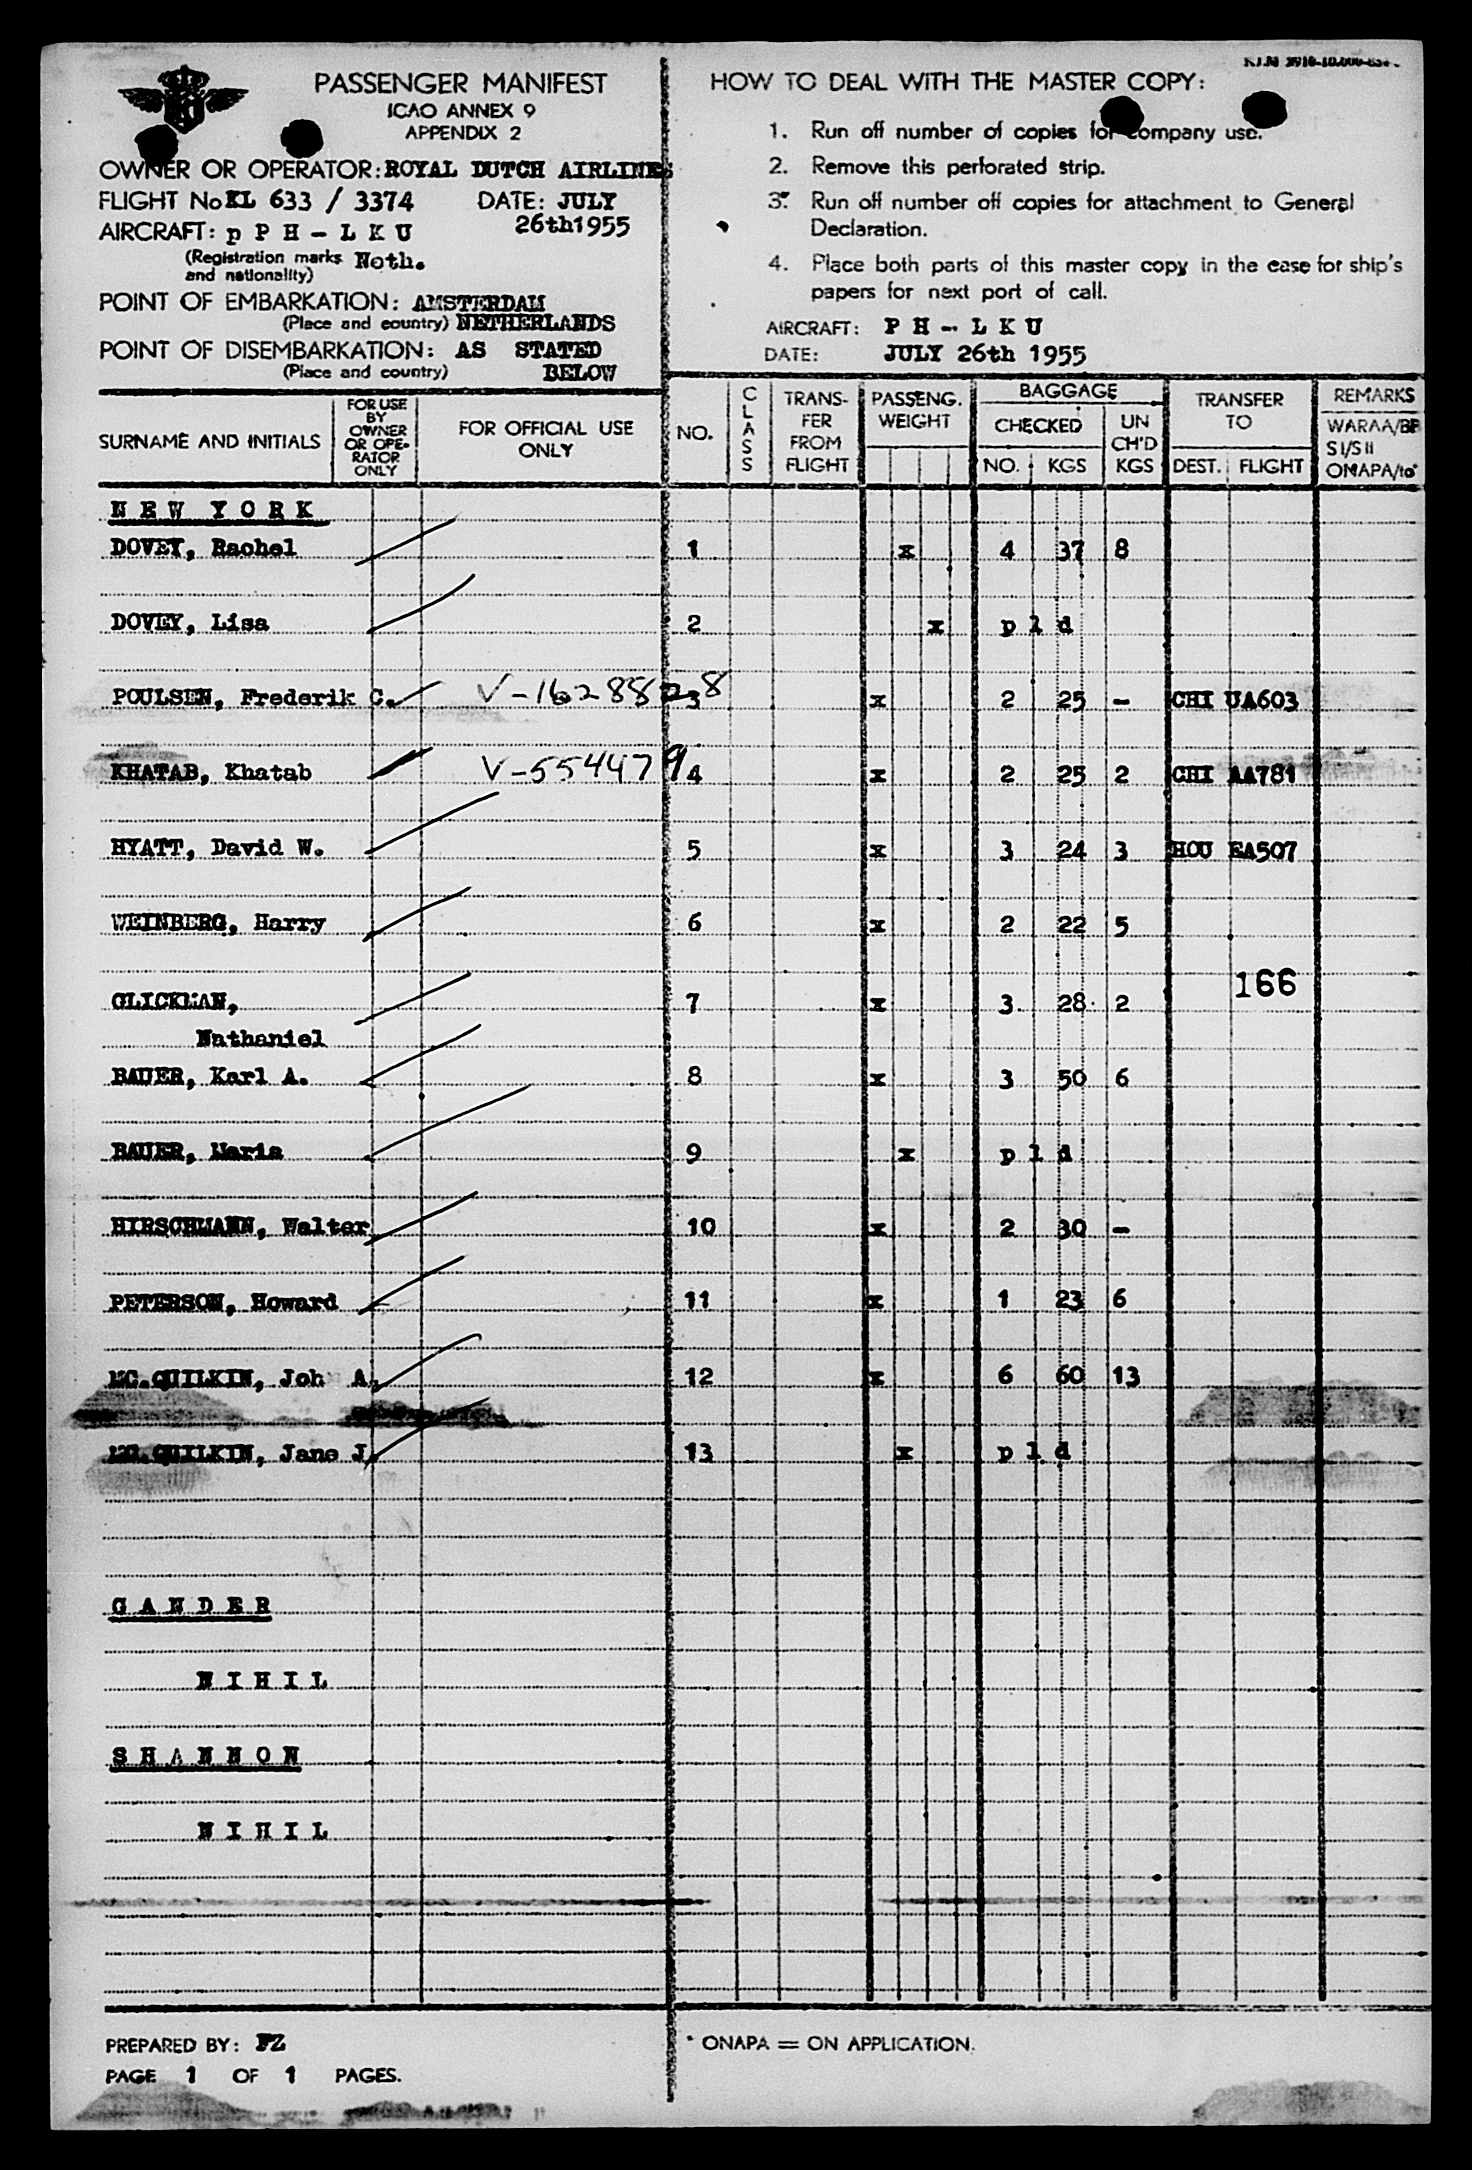 PASSENGER MANIFEST
ICAO ANNEX 9
APPENDIX 2
OWNER OR OPERATOR: ROYAL DUTCH AIRLINES
FLIGHT No KL 633 / 3374 DATE: JULY
26th1955
AIRCRAFT: p P H - L K U
(Registration marks Neth.
and nationality)
POINT OF EMBARKATION: AMSTERDAM
(Place and country) NETHERLANDS
POINT OF DISEMBARKATION: AS STATED
(Place and country) BELOW
HOW TO DEAL WITH THE MASTER COPY:
1. Run off number of copies for company use.
2. Remove this perforated strip.
3. Run off number off copies for attachment to General
Declaration.
4. Place both parts of this master copy in the case for ship's
papers for next port of call.
AIRCRAFT: P H - L K U
DATE: JULY 26th 1955
SURNAME AND INITIALS
FOR USE
BY
OWNER
OR OPE-
RATOR
ONLY
FOR OFFICIAL USE
ONLY
NO.
C
L
A
S
S
TRANS-
FER
FROM
FLIGHT
PASSENG.
WEIGHT
BAGGAGE
CHECKED
NO. KGS
UN
CH'D
KGS
TRANSFER
TO
DEST. FLIGHT
REMARKS
WARAA/BP
SI/SII
ONAPA/to*
N E W Y O R K
DOVEY, Rachel 1 x 4 37 8
DOVEY, Lisa 2 x p l d
POULSEN, Frederik C. V-1628828 3 x 2 25 - CHI UA603
KHATAB, Khatab V-554479 4 x 2 25 2 CHI AA781
HYATT, David W. 5 x 3 24 3 HOU EA507
WEINBERG, Harry 6 x 2 22 5
166
GLICKMAN, 7 x 3 28 2
Nathaniel
BAUER, Karl A. 8 x 3 50 6
BAUER, Maria 9 x p l d
HIRSCHMANN, Walter 10 x 2 30 -
PETERSON, Howard 11 x 1 23 6
MC.QUILKIN, Joh A. 12 x 6 60 13
MC.QUILKIN, Jane J. 13 x p l d
G A N D E R
N I H I L
S H A N N O N
N I H I L
PREPARED BY: FZ
PAGE 1 OF 1 PAGES.
* ONAPA = ON APPLICATION.